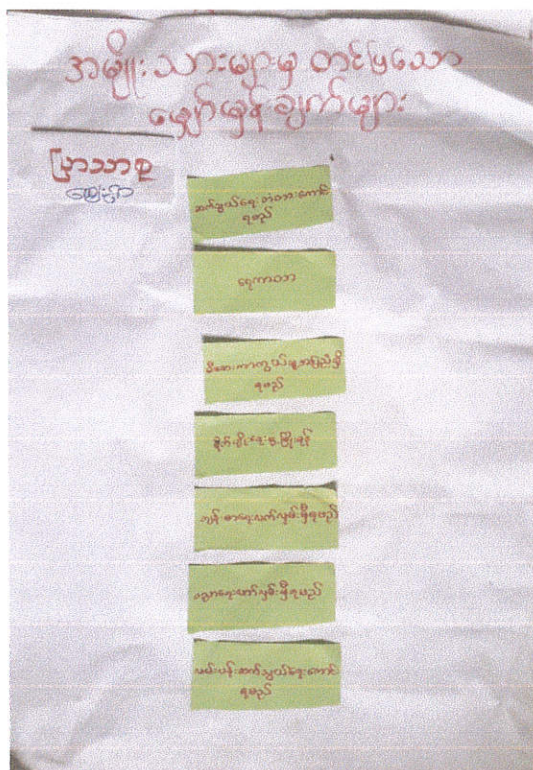 အမျိုးသားများမှ တင်ပြသော
မျှော်မှန်းချက်များ
ပြာသာစု
ဆက်သွယ်ရေး တံတားကောင်း
ရမည်
ရေကာတာ
မီးဘေးကာကွယ်မှုအပြည့်ရှိ
ရမည်
စိုက်ပျိုးရေးဖွံ့ဖြိုးရန်
ကျန်းမာရေးလက်လှမ်းမှီရမည်
ပညာရေးလက်လှမ်းမှီရမည်
လမ်းပန်းဆက်သွယ်ရေးကောင်း
ရမည်